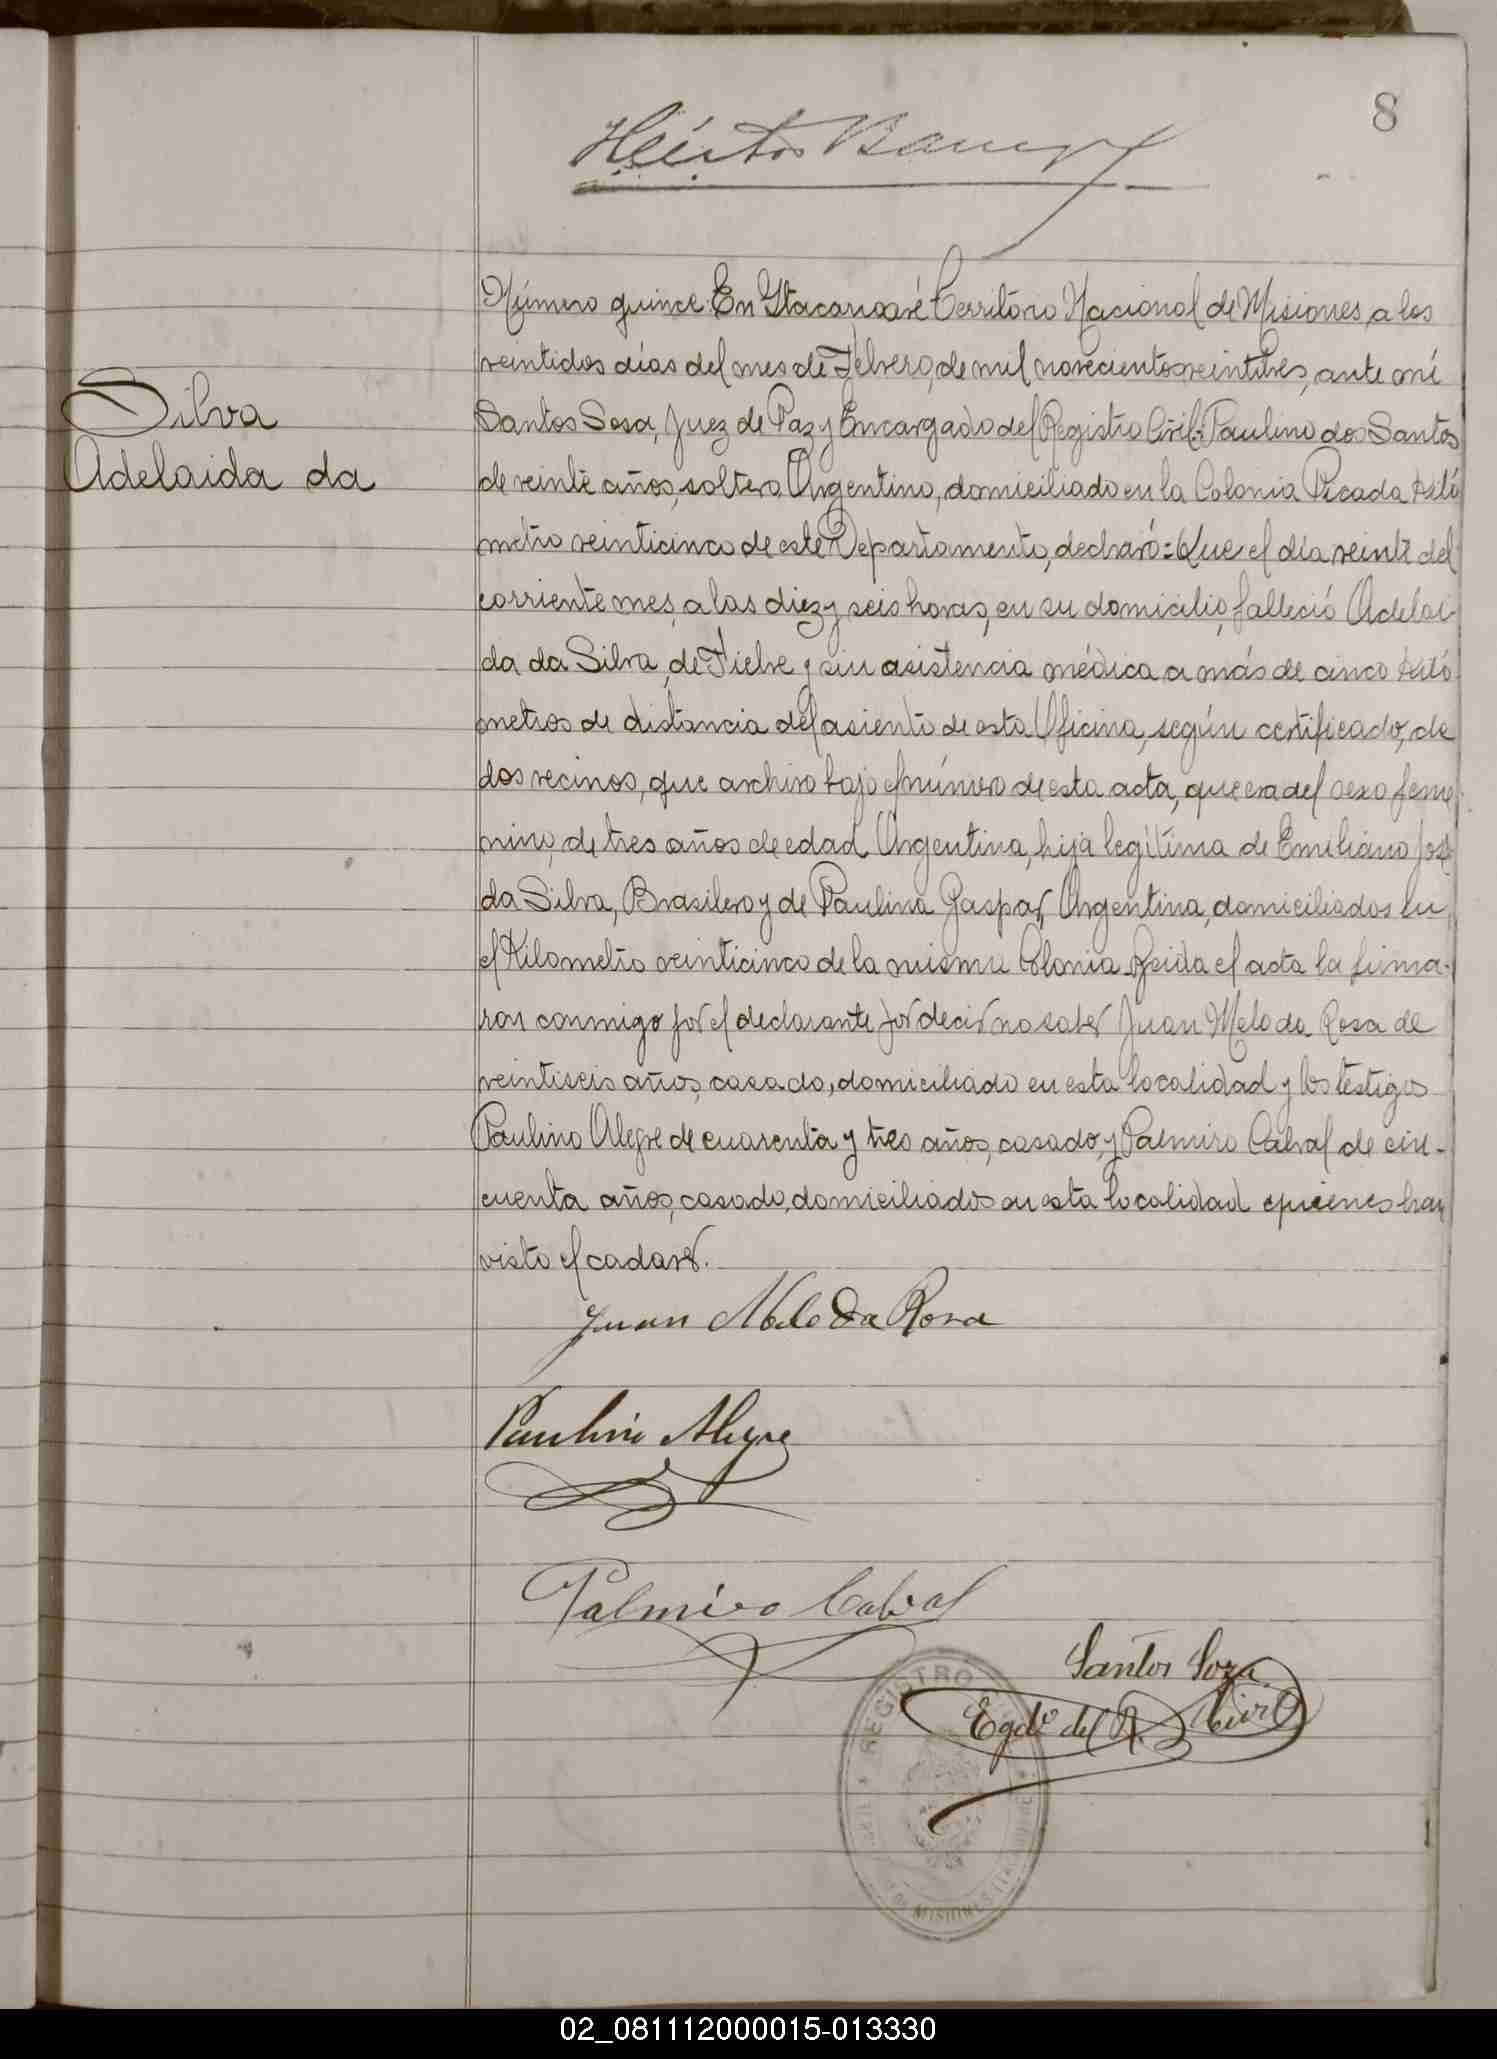 8
Héctor
Número quince. En Ytacaruaré Territorio Nacional de Misiones, a los
veintidos días del mes de Febrero, de mil novecientos veintitres, ante mí
Silva
Santos Sosa, Juez de Paz y Encargado del Registro Civil: Paulino dos Santos
Adelaida da
de veinte años, soltero, Argentino, domiciliado en la Colonia Picada Kiló
metro veinticinco de este Departamento, declaró: Que el día veinte del
corriente mes, a las diez y seis horas, en su domicilio, falleció Adelai-
da da Silva, de Fiebre y sin asistencia médica a más de cinco kiló
metros de distancia del asiento de esta Oficina, según certificado, de
dos vecinos, que archivo bajo el número de esta acta, que era del sexo feme
nino, de tres años de edad, Argentina, hija legítima de Emiliano José
da Silva, Brasilero y de Paulina Gaspar, Argentina, domiciliados en
el Kilometro veinticinco de la misma Colonia. Leida el acta la firma-
ron conmigo por el declarante por decir no saber Juan Melo da Rosa de
veintiseis años, casado, domiciliado en esta localidad y los testigos
Paulino Alegre de cuarenta y tres años, casado, y Palmiro Cabral de cin-
cuenta años, casado, domiciliados en esta localidad quienes han
visto el cadaver.
Juan Melo Da Rosa
Paulino Alegre
Palmiro Cabral
Santos Soza
Egdo del R. Civil
REGISTRO
MISIONES
02_081112000015-013330